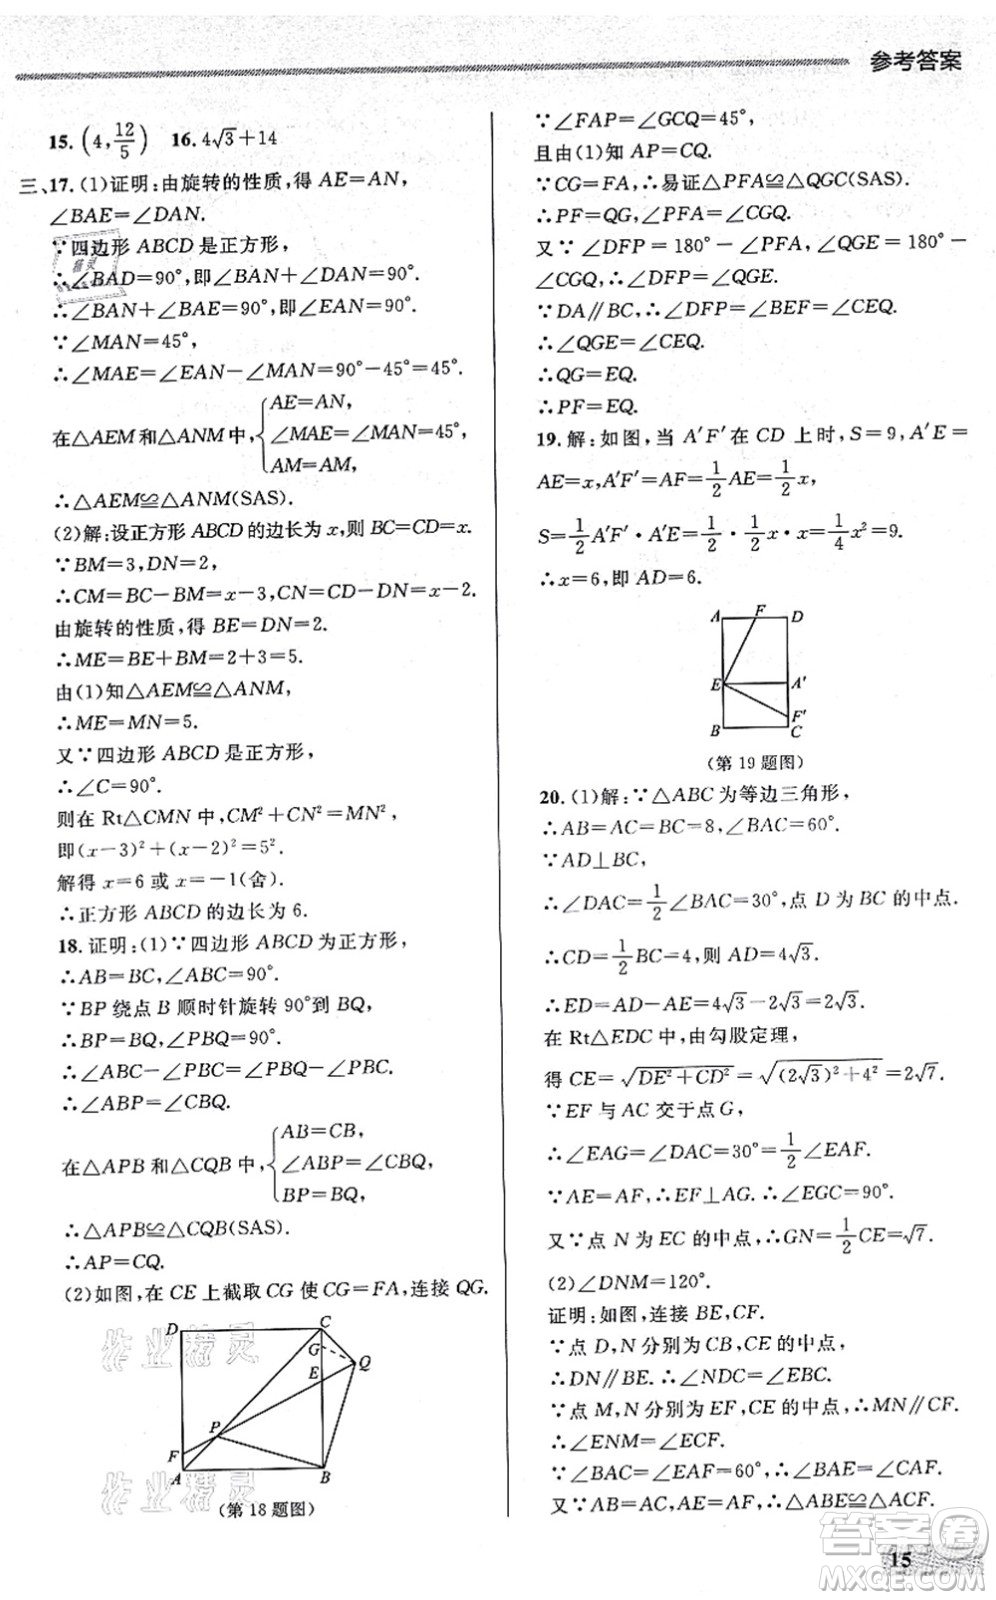 参考答案
15.(4,12/5)  16.4√3+14
三、17.(1)证明:由旋转的性质,得 AE=AN,
∠BAE=∠DAN.
∵四边形 ABCD 是正方形,
∴∠BAD=90°,即∠BAN+∠DAN=90°.
∴∠BAN+∠BAE=90°.即∠EAN=90°.
∵∠MAN=45°,
∴∠MAE=∠EAN-∠MAN=90°-45°=45°.
在△AEM 和△ANM 中,{AE=AN,
∠MAE=∠MAN,
AM=AM,
∴△AEM≌△ANM(SAS).
(2)解:设正方形 ABCD 的边长为 x,则 BC=CD=x.
∵BM=3,DN=2,
∴CM=BC-BM=x-3,CN=CD-DN=x-2.
由旋转的性质,得 BE=DN=2.
∴ME=BE+BM=2+3=5.
由(1)知△AEM≌△ANM,
∴ME=MN=5.
又∵四边形 ABCD 是正方形,
∴∠C=90°.
则在 Rt△CMN 中,CM²+CN²=MN²,
即(x-3)²+(x-2)²=5².
解得 x=6 或 x=-1(舍).
∴正方形 ABCD 的边长为 6.
18.证明:(1)∵四边形 ABCD 为正方形,
∴AB=BC,∠ABC=90°.
∵BP 绕点 B 顺时针旋转 90°到 BQ,
∴BP=BQ,∠PBQ=90°.
∴∠ABC-∠PBC=∠PBQ-∠PBC.
∴∠ABP=∠CBQ.
在△APB 和△CQB 中,{AB=CB,
∠ABP=∠CBQ,
BP=BQ,
∴△APB≌△CQB(SAS).
∴AP=CQ.
(2)如图,在 CE 上截取 CG 使 CG=FA,连接 QG.
D C G Q E P F A B
(第 18 题图)
∵∠FAP=∠GCQ=45°,
且由(1)知 AP=CQ.
∵CG=FA,∴易证△PFA≌△QGC(SAS).
∴PF=QG,∠PFA=∠CGQ.
又∵∠DFP=180°-∠PFA,∠QGE=180°-
∠CGQ,∴∠DFP=∠QGE.
∵DA∥BC,∴∠DFP=∠CEQ.
∴∠QGE=∠CEQ.
∴QG=EQ.
∴PF=EQ.
19.解:如图,当 A′F′在 CD 上时,S=9,A′E=
AE=x,A′F′=AF=1/2AD=1/2x,
S=1/2A′F′·A′E=1/2·1/2x·x=1/4x²=9.
∴x=6,即 AD=6.
A F D E A′ F′ B C
(第 19 题图)
20.(1)解:∵△ABC 为等边三角形,
∴AB=AC=BC=8,∠BAC=60°.
∵AD⊥BC,
∴∠DAC=1/2∠BAC=30°,点 D 为 BC 的中点.
∴CD=1/2BC=4,则 AD=4√3.
∴ED=AD-AE=4√3-2√3=2√3.
在 Rt△EDC 中,由勾股定理,
得 CE=√(DE²+CD²)=√((2√3)²+4²)=2√7.
∵EF 与 AC 交于点 G,
∴∠EAG=∠DAC=30°=1/2∠EAF.
∵AE=AF,∴EF⊥AG.∴∠EGC=90°.
又∵点 N 为 EC 的中点,∴GN=1/2CE=√7.
(2)∠DNM=120°.
证明:如图,连接 BE,CF.
∵点 D,N 分别为 CB,CE 的中点,
∴DN∥BE.∴∠NDC=∠EBC.
∵点 M,N 分别为 EF,CE 的中点,∴MN∥CF.
∴∠ENM=∠ECF.
∵∠BAC=∠EAF=60°,∴∠EAB=∠FAC.
又∵AB=AC,AE=AF,∴△ABE≌△ACF.
15
作业精灵
作业精灵
精灵
答案卷
MXQE.COM